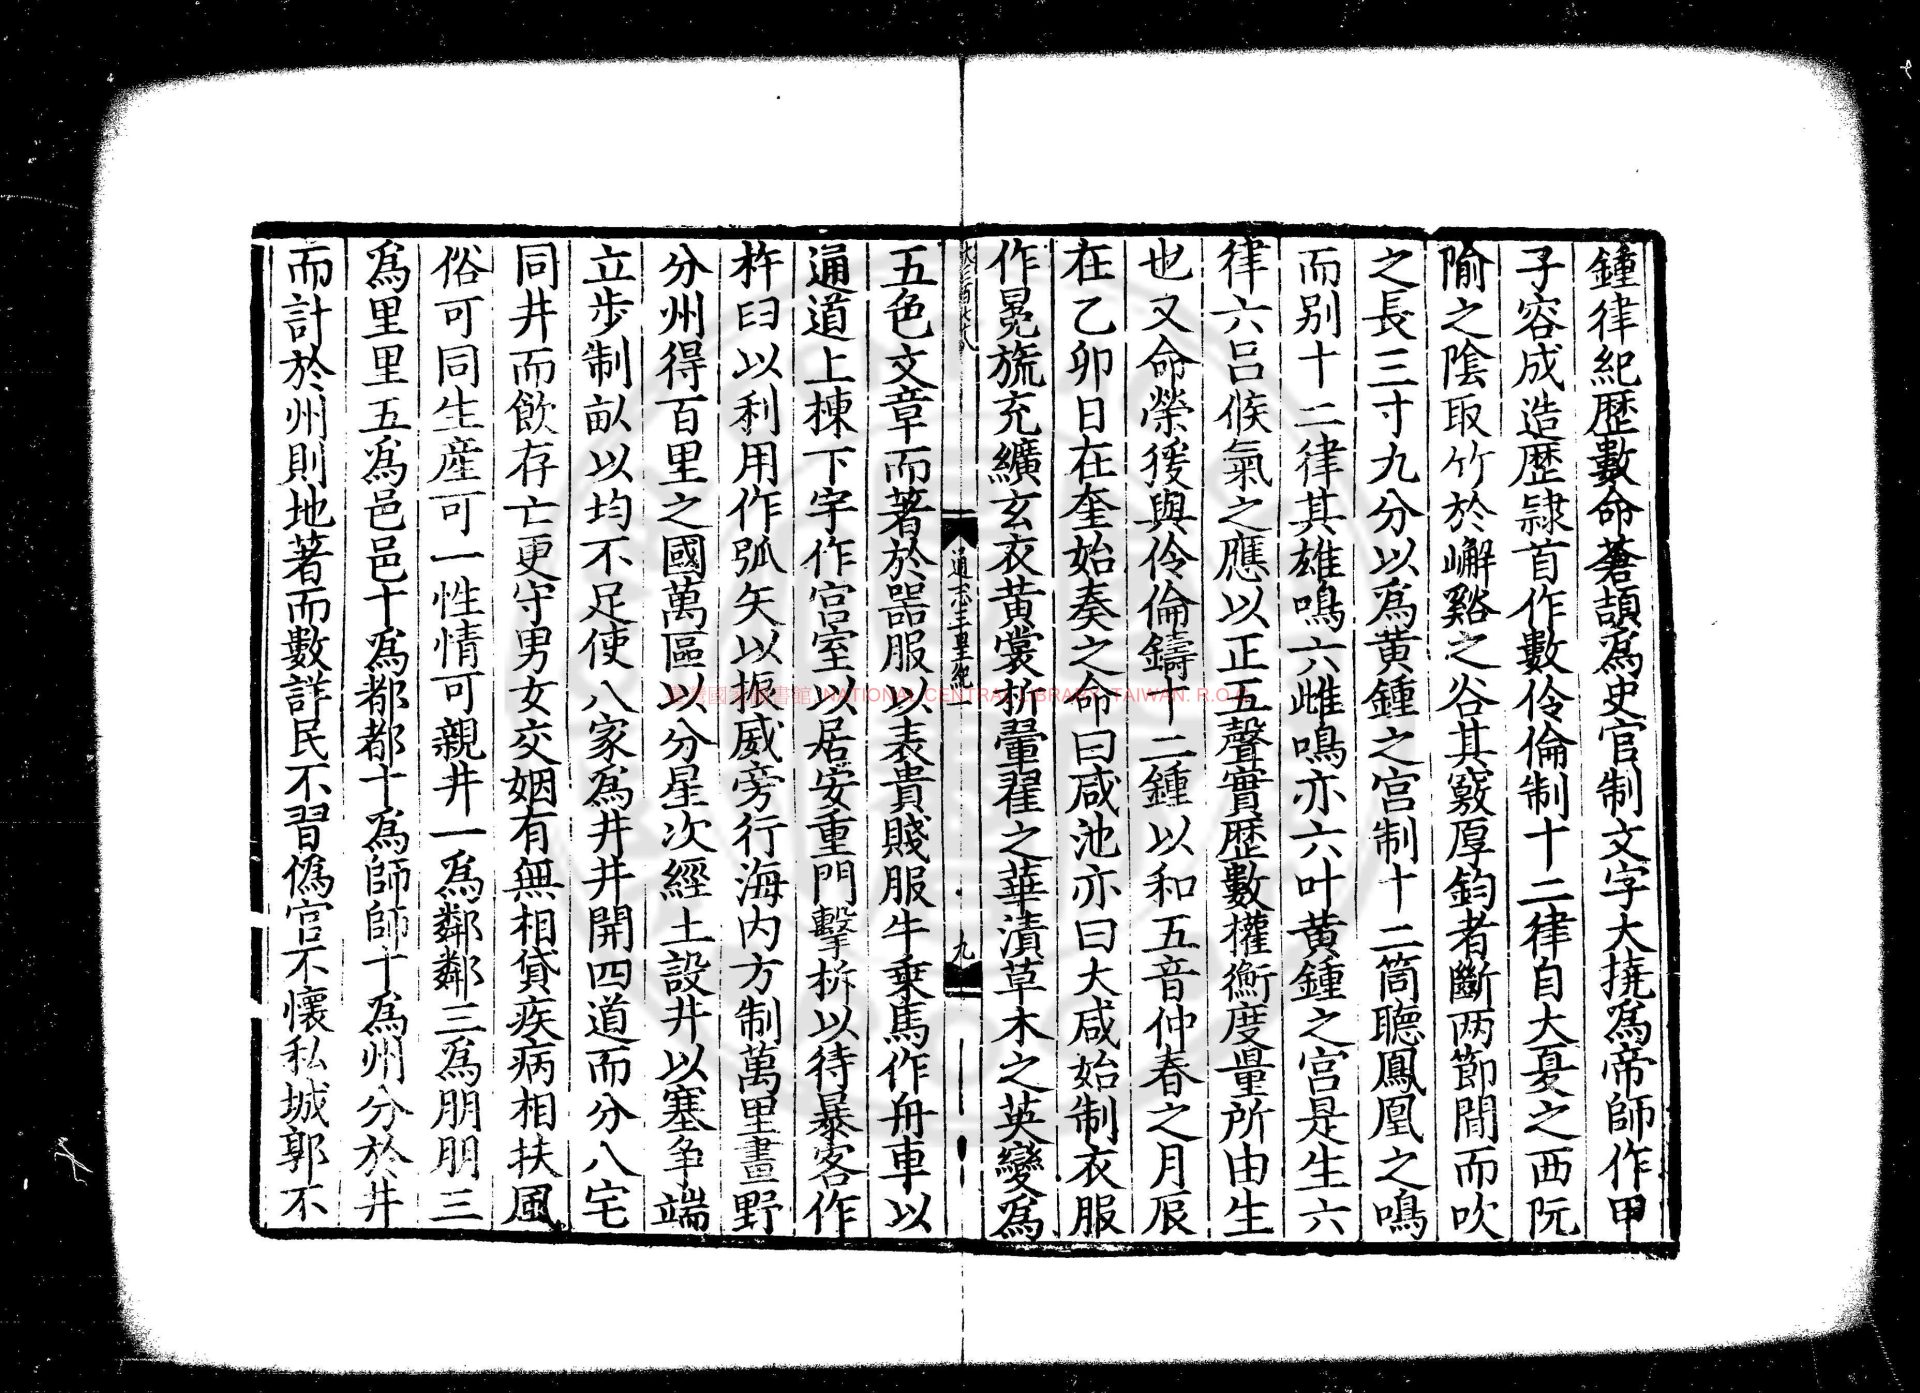 鍾律紀歴數命蒼頡爲史官制文字大撓爲帝師作甲
子容成造歴隷首作數伶倫制十二律自大夏之西阮
隃之隂取竹於嶰谿之谷其竅厚鈞者斷两節間而吹
之長三寸九分以爲黄鍾之宫制十二筒聽鳳凰之鳴
而别十二律其雄鳴六雌鳴亦六叶黄鍾之宫是生六
律六吕候氣之應以正五聲實歴數權衡度量所由生
也又命榮猨與伶倫鑄十二鍾以和五音仲春之月辰
在乙卯日在奎始奏之命曰咸池亦曰大咸始制衣服
作冕旒充纊玄衣黄裳折翬翟之華漬草木之英變爲
通志三皇紀一
九
五色文章而著於噐服以表貴賤服牛乗馬作舟車以
通道上棟下宇作宫室以居安重門擊柝以待暴客作
杵臼以利用作弧矢以振威旁行海内方制萬里畫野
分州得百里之國萬區以分星次經土設井以塞争端
立步制畝以均不足使八家爲井井開四道而分八宅
同井而飲存亡更守男女交姻有無相貸疾病相扶風
俗可同生産可一性情可親井一爲鄰鄰三爲朋朋三
爲里里五爲邑邑十爲都都十爲師師十爲州分於井
而計於州則地著而數詳民不習僞官不懷私城郭不
臺灣國家圖書館 NATIONAL CENTRAL LIBRARY, TAIWAN. R.O.C